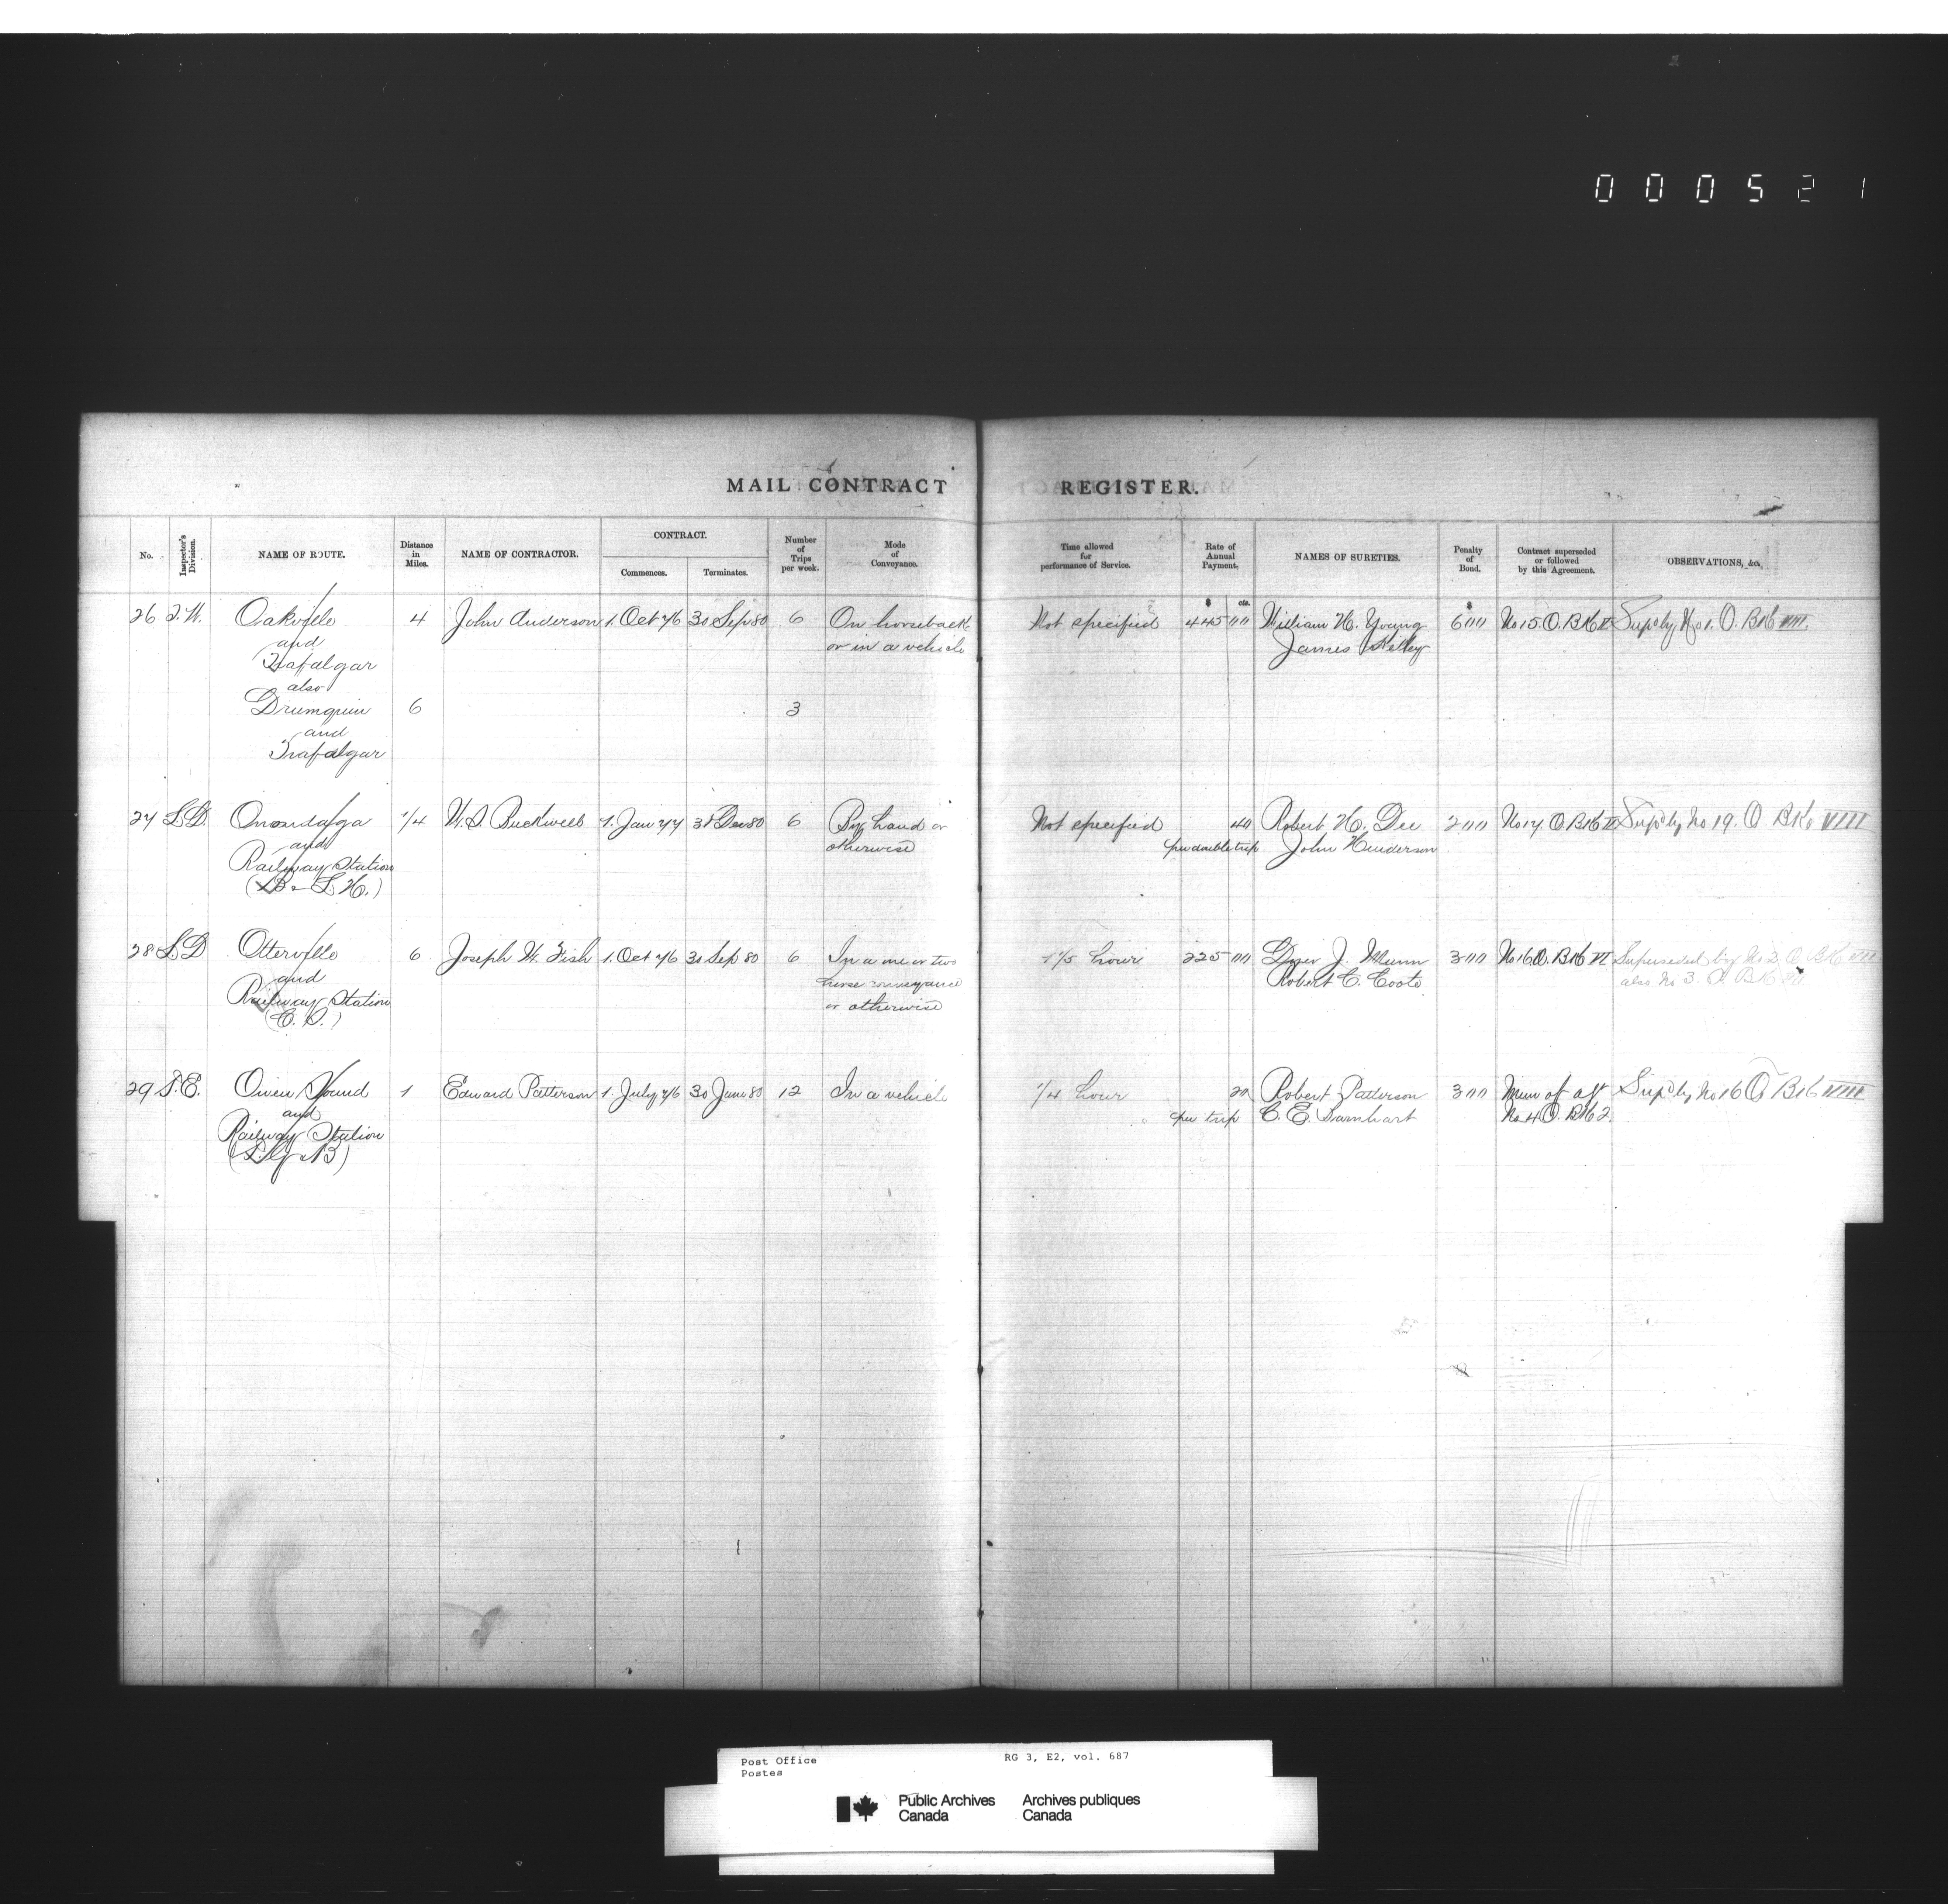 000521
MAIL CONTRACT REGISTER.
No. Inspector's Division. NAME OF ROUTE. Distance in Miles. NAME OF CONTRACTOR. CONTRACT. Commences. Terminates. Number of Trips per week. Mode of Conveyance. Time allowed for performance of Service. Rate of Annual Payment. NAMES OF SURETIES. Penalty of Bond. Contract superseded or followed by this Agreement. OBSERVATIONS, &c.
$ cts. $
26 T.W. Oakville 4 John Anderson 1. Oct 76 30 Sep 80 6 On horseback Not specified 445 00 William H. Young 600 No 15 O. BK VI Supd by No 1. O. BK VIII.
and or in a vehicle James
Trafalgar
also
Drumquin 6 3
and
Trafalgar
27 L.D. Onondaga 1/4 W.S. Buckwell 1. Jan 77 31 Dec 80 6 By hand or Not specified 40 Robert H. Dee 200 No 17. O BK VI Supd by No 19. O BK VIII
and otherwise per double trip John Henderson
Railway Station
(B & L H.)
28 L D Otterville 6 Joseph W. Fish 1. Oct 76 30 Sep 80 6 In a one or two 1½ hours 225 00 J. 300 No 16 O. BK VI Superseded by No 2 O BK VIII
and horse conveyance Robert C. Coote also No 3. O. BK
Railway Station or otherwise
(C. S.)
29 T.E. Owen Sound 1 Edward Patterson 1. July 76 30 June 80 12 In a vehicle 1/4 hour 20 Robert Patterson 300 Mem of agt Supd by No 16 O BK VIII
and per trip C. E. Barnhart No 4 O. BK 2.
Railway Station
(T. G & B)
Post Office RG 3, E2, vol. 687
Postes
Public Archives Archives publiques
Canada Canada